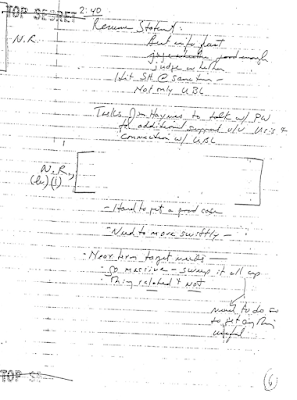 TOP SECRET 2:40
N.R.
best info fast
judge whether good enough
Hit S.H. @ same time –
Not only UBL
Tasks Jim Haynes to talk w/ PW
for additional support v/v
connection w/ UBL
N.R.,
(b)(1)
- Hard to get a good case
- Need to move swiftly –
- Near term target needs –
- go massive – sweep it all up
Things related & not
need to do so
to get anything
useful
TOP SE
6